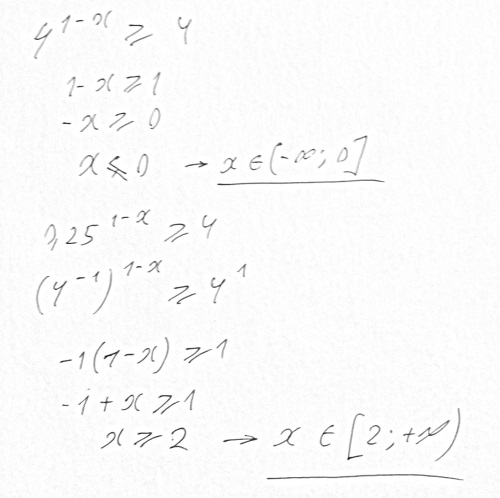 4^{1-x} ≥ 4
1-x ≥ 1
-x ≥ 0
x ≤ 0 → x ∈ (-∞; 0]
0,25^{1-x} ≥ 4
(4^{-1})^{1-x} ≥ 4^1
-1(1-x) ≥ 1
-1+x ≥ 1
x ≥ 2 → x ∈ [2; +∞)